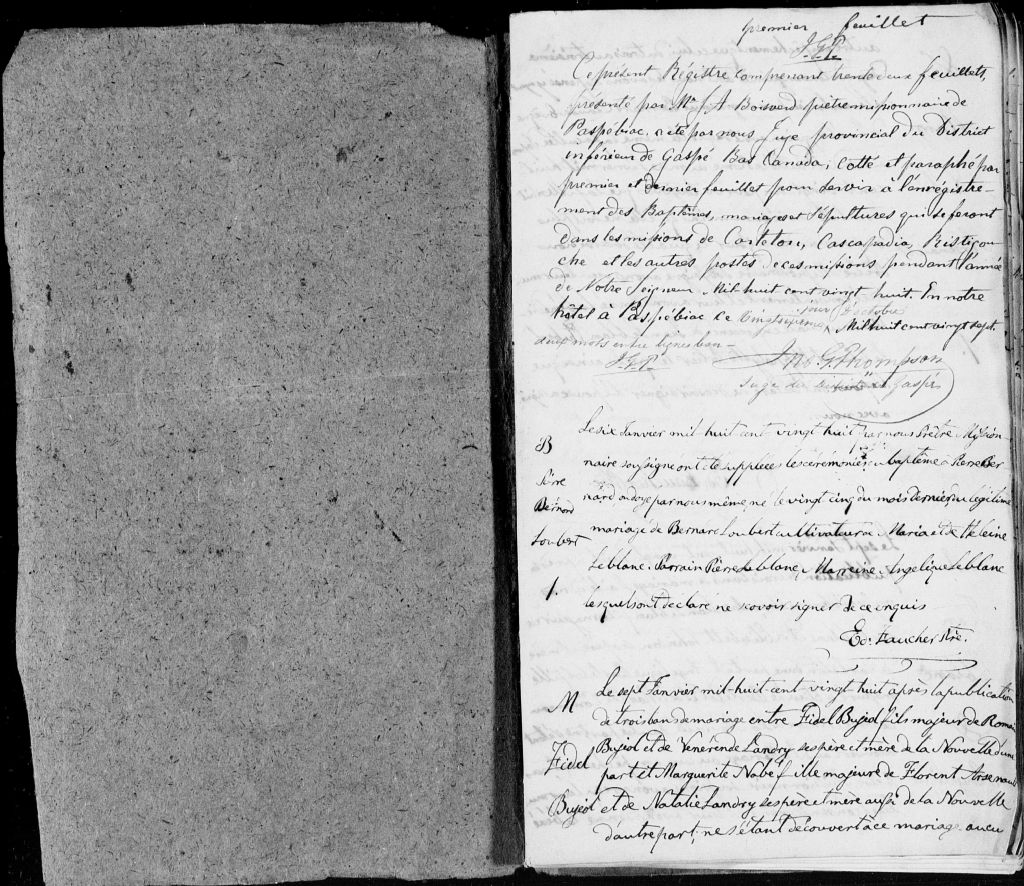 premier feuillet
J.G.T.
Ce présent Régistre comprenant trente deux feuillets,
présenté par Mr J A Boisverd prêtre missionnaire de
Paspébiac, a été par nous Juge provincial du District
inférieur de Gaspé Bas Canada, Cotté et paraphé par
premier et dernier feuillet pour servir à l'enrégistre-
ment des Baptêmes, mariages et Sépultures qui se feront
dans les missions de Carleton, Cascapadia, Ristigou-
che et les autres postes de ces missions pendant l'année
de Notre Seigneur Mil huit cent vingt huit. En notre
jour d'octobre
hôtel à Paspébiac ce vingtsixieme Mil huit cent vingt sept.
deux mots entre lignes bon -
J.G.T. Jno. G Thompson
Juge du Gaspé
B Le six Janvier mil huit cent vingt huit par nous Prêtre Mission-
naire soussigné ont été supplées les cérémonies du baptême à Pierre Ber
Pierre nard, ondoyé par nous même, né le vingt cinq du mois dernier, du légitime
Bérnard mariage de Bernard Loubert cultivateur à Maria et de Heleine
Loubert Leblanc. Parrain Pierre Leblanc, Marreine Angelique Leblanc
1. lesquels ont déclaré ne savoir signer de ce enquis
Ed. Faucher Ptre.
M Le sept Janvier mil-huit-cent-vingt huit après la publication
de trois bans de mariage entre Fidel Bujol fils majeur de Romain
Fidel Bujol et de Venérende Landry ses père et mère de la Nouvelle d'une
part et Marguerite Nabé fille majeure de Florent Arsenault
Bujol et de Natalie Landry ses père et mère aussi de la Nouvelle
d'autre part; ne s'étant découvert à ce mariage aucu